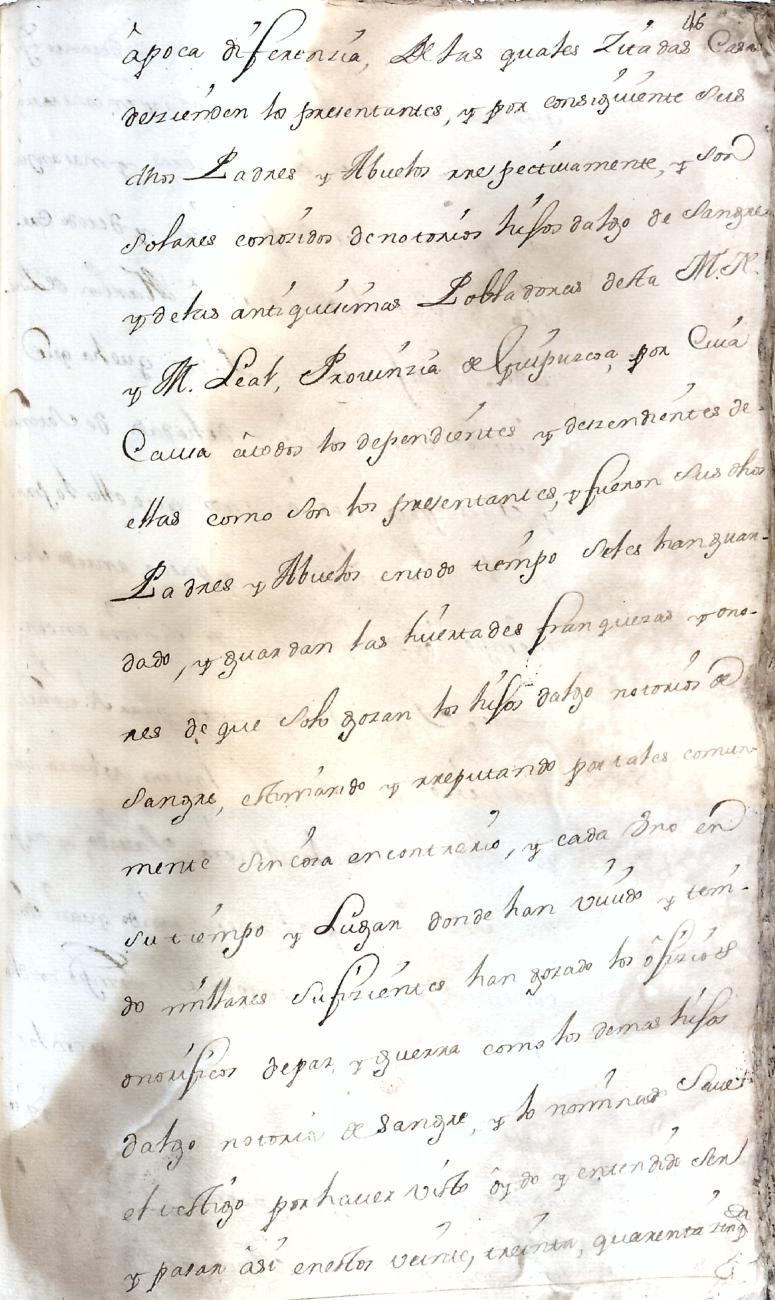 46
â poca diferenzia, de las quales Zitadas Casas
deszienden los presentantes, y por consiguiente sus
dhos Padres y Abuelos rrespectivamente, y son
solares conozidos de notorios hijos dalgo de sangre
y de las antiquisimas Pobladoras desta M. N.
y M. Leal, Provinzia de Guipuzcoa, por Cuia
Caussa â todos los dependientes y deszendientes de
ellas como son los presentantes, y fueron sus dhos
Padres y Abuelos en todo tiempo seles han guar-
dado, y guardan las livertades franquezas y ono-
res de que solo gozan los hijos dalgo notorios de
sangre, estimando y rreputando por tales comun-
mente sin cosa en contrario, y cada vno en
su tiempo y Lugar donde han vivido y teni-
do millares sufizientes han gozado los ôfizios
onorificos de paz, y guerra como los demas hijos
dalgo notorios de sangre, y lo nominado Save
el testigo por haver visto ôydo y entendido ser
y pasar âsi en estos veinte, treinta, quarenta